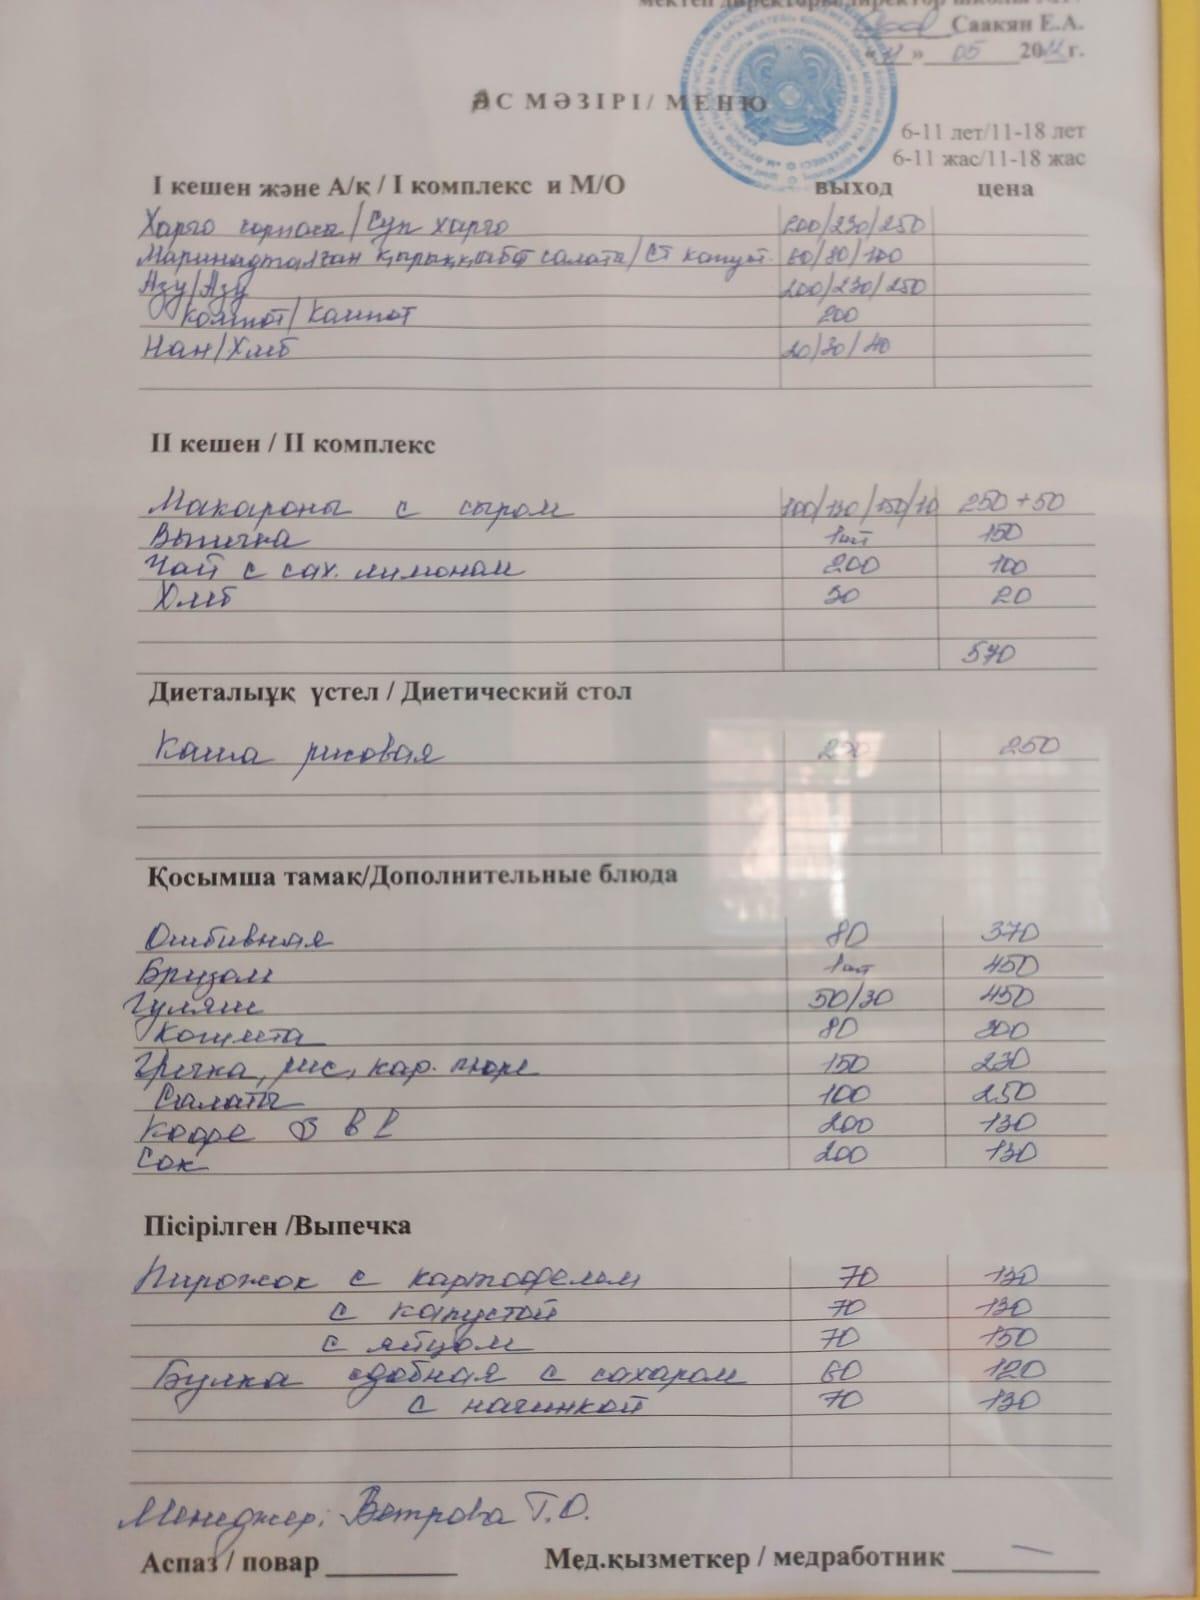 мектеп директоры/директор школы №17
Саакян Е.А.
«11» 05 20 г.
АС МӘЗІРІ/ МЕНЮ
6-11 лет/11-18 лет
6-11 жас/11-18 жас
I кешен және А/қ / I комплекс и М/О выход цена
Харчо сорпасы/Суп харчо 200/230/250
Маринадталған қырыққабат салаты/ Ст капуст. 60/80/100
Азу/Азу 200/230/250
Компот/Компот 200
Нан/Хлеб 20/30/40
II кешен / II комплекс
Макароны с сыром 100/130/150/10 250+50
Выпечка 1шт 150
Чай с сах. лимоном 200 100
Хлеб 30 20
570
Диеталыұқ үстел / Диетический стол
Каша рисовая 250
Қосымша тамақ/Дополнительные блюда
Отбивная 80 370
Бризоль 1шт 450
Гуляш 50/30 450
Котлета 80 300
Гречка, рис, кар. пюре 150 230
Салаты 100 250
Кофе 3 в 1 200 130
Сок 200 130
Пісірілген /Выпечка
Пирожок с картофелем 70 130
с капустой 70 130
с яйцом 70 150
Булка сдобная с сахаром 60 120
с начинкой 70 130
Менеджер: Ветрова Т.О.
Аспаз / повар Мед.қызметкер / медработник